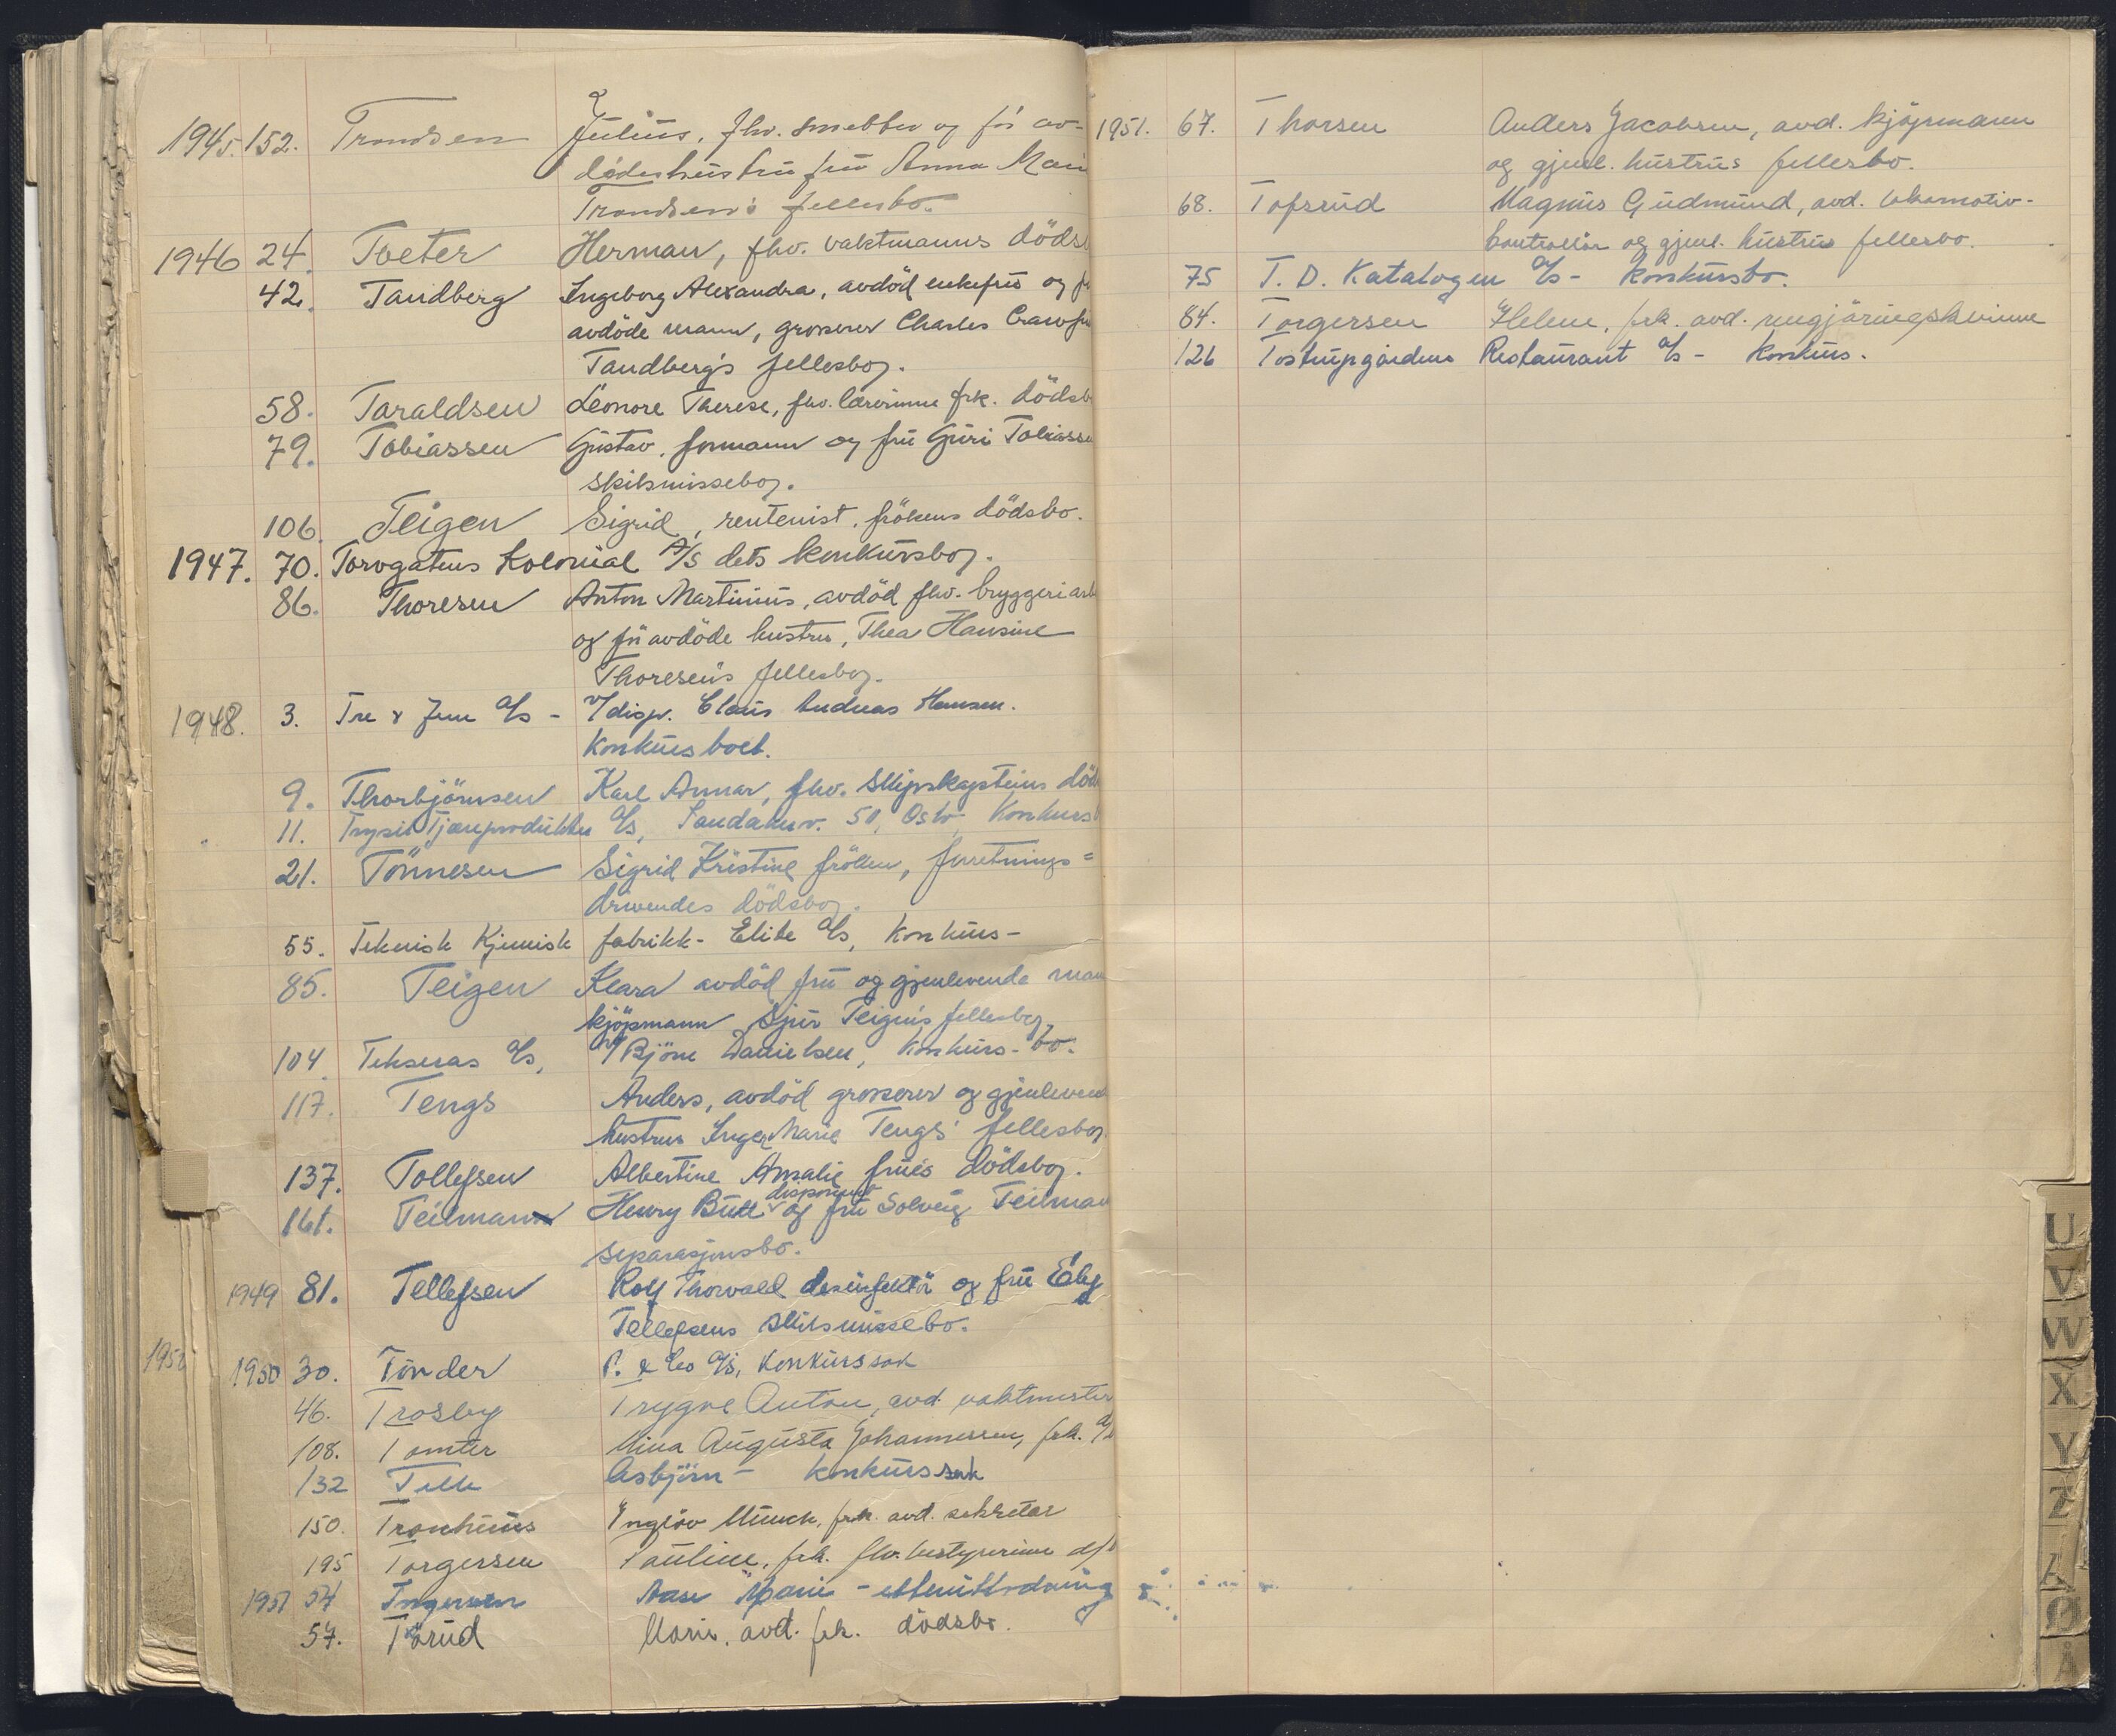 1945. 152. Trondsen Julius, fhv. snekker og før av-
dödes hustru fru Anna Mari
Trondsen's fellesbo.
1946 24. Tveter Herman, fhv. vaktmanns döds
42. Tandberg Ingeborg Alexandra, avdöd enkefru og f
avdöde mann, grosserer Charles Crawfu
Tandberg's fellesboj.
58. Taraldsen Leonore Therese, fhv. lærerinne frk. dödsb
79. Tobiassen Gustav, formann og fru Guri Tobiasse
skilsmissebo.
106. Teigen Sigrid, rentenist, frökens dödsbo.
1947. 70. Torvgatens Kolonial A/S dets konkursboj.
86. Thoresen Anton Martinius, avdöd fhv. bryggeriarb
og før avdöde hustru, Thea Hansine
Thoresen's fellesboj.
1948. 3. Tre & Jern A/s - v/disp. Claus Andreas Hansen.
Konkursboet.
9. Thorbjörnsen Karl Annar, fhv. skipskapteins död
11. Trysil Tjæreprodukter A/s, Sandakerv. 50, Oslo, Konkurs
21. Tönnesen Sigrid Kristine fröken, forretnings=
drivendes dödsboj.
55. Teknisk Kjemisk fabrikk - Elite A/s, Konkurs-
85. Teigen Klara avdöd fru og gjenlevende man
kjöpmann Sjur Teigen's fellesboj
104. Tekseras A/s, v/ Björn Danielsen, Konkurs-bo.
117. Tengs Anders, avdöd grosserer og gjenleven
hustru Inger Marie Tengs' fellesboj
137. Tollefsen Albertine Amalie frues dödsboj.
disponent
161. Teilman Henry Butt og fru Solveig Teilman
separasjonsbo.
1949 81. Tellefsen Rolf Thorvald desinfektör og fru Edly
Tellefsens skilsmissebo.
1950 1950 30. Tönder P. & Co A/S, Konkurssak
46. Trosby Trygve Anton, avd. vaktmester
108. Tomter Mina Augusta Johannessen, frk. d/b
132 Telle Asbjörn - konkurssak
150. Tronhuus Yngsöv Munch, frk. avd. sekretær
195 Torgersen Pauline, frk. fhv. bestyrerinne d/b
1951 54 Ingersen Aase Marie - etterutlodning
57. Törud Marie, avd. frk. dödsbo.
1951. 67. Thorsen Anders Jacobsen, avd. kjöpmann
og gjenl. hustrus fellesbo.
68. Tofsrud Magnus Gudmund, avd. lokomotiv-
kontrollör og gjenl. hustrus fellesbo.
75 T. D. Katalogen A/s - konkursbo.
84. Torgersen Helene, frk. avd. rengjöringskvinne
126 Tostrupgårdens Restaurant A/s - Konkurs.
U
V
W
X
Y
Z
Æ
Ø
Å